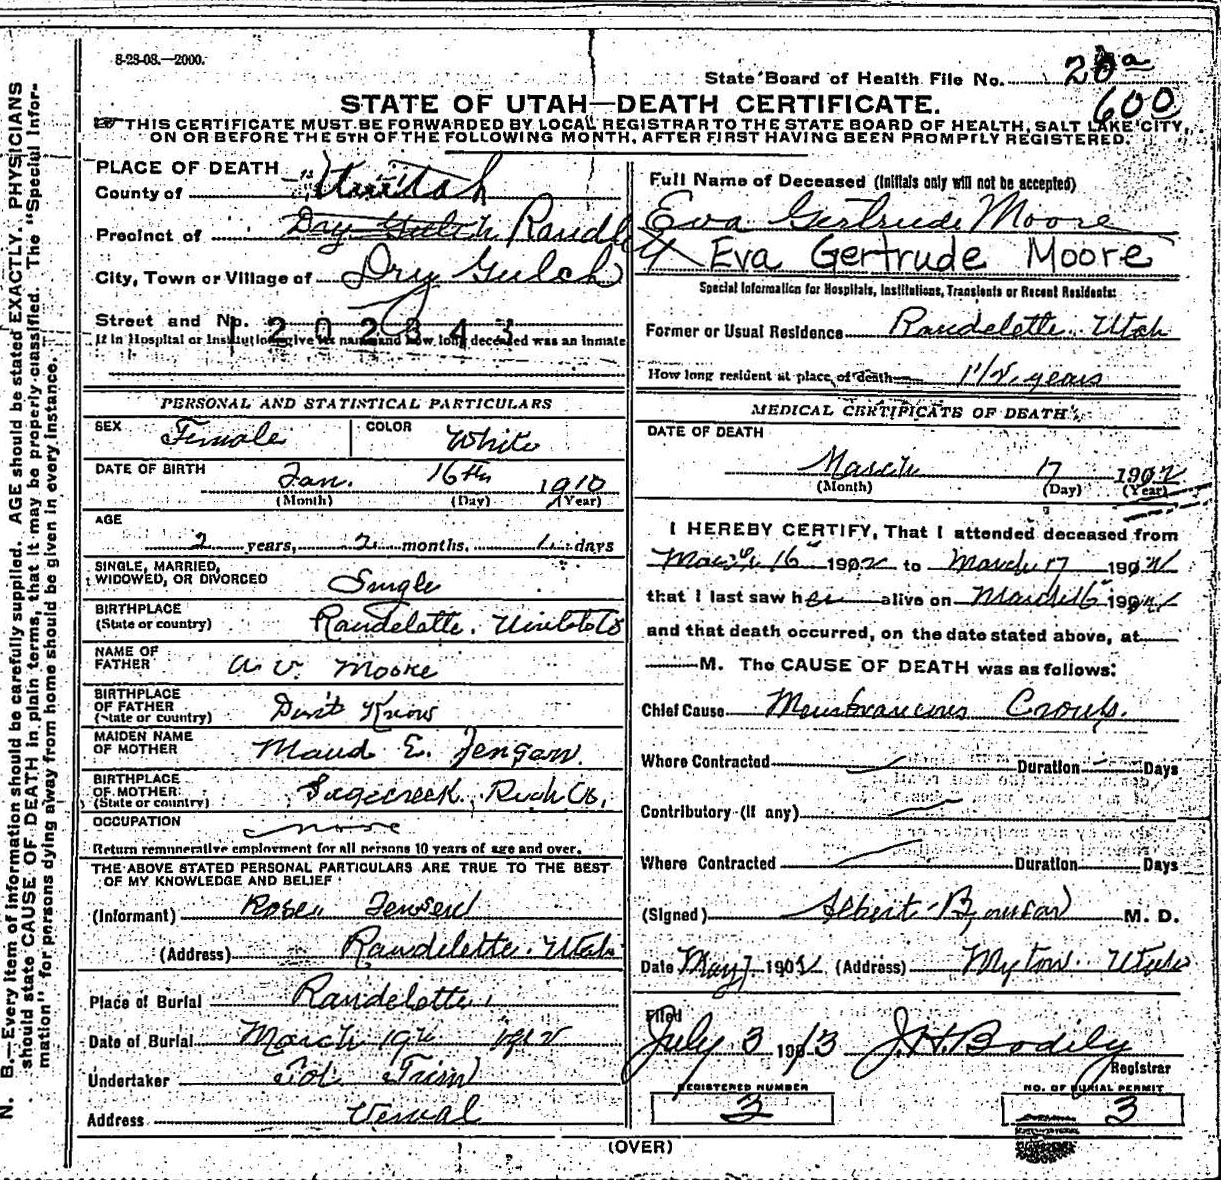 8-28-08.—2000.
State Board of Health File No. 20a
600
STATE OF UTAH—DEATH CERTIFICATE.
THIS CERTIFICATE MUST BE FORWARDED BY LOCAL REGISTRAR TO THE STATE BOARD OF HEALTH, SALT LAKE CITY,
ON OR BEFORE THE 5TH OF THE FOLLOWING MONTH, AFTER FIRST HAVING BEEN PROMPTLY REGISTERED.
N. B.—Every item of information should be carefully supplied. AGE should be stated EXACTLY. PHYSICIANS
should state CAUSE OF DEATH in plain terms, that it may be properly classified. The "Special Infor-
mation" for persons dying away from home should be given in every instance.
PLACE OF DEATH
County of Uintah
Precinct of Dry Gulch Randl
City, Town or Village of Dry Gulch
Street and No.
1202343
If in Hospital or Institution give its name and how long deceased was an inmate
PERSONAL AND STATISTICAL PARTICULARS
SEX Female COLOR White
DATE OF BIRTH Jan. 16th 1910
(Month) (Day) (Year)
AGE
2 years, 2 months, 1 days
SINGLE, MARRIED,
WIDOWED, OR DIVORCED Single
BIRTHPLACE
(State or country) Randelette.
NAME OF
FATHER A V. Moore
BIRTHPLACE
OF FATHER
(State or country) Don't Know
MAIDEN NAME
OF MOTHER Maud E.
BIRTHPLACE
OF MOTHER
(State or country) Sagecreek, Rich Co.
OCCUPATION none
Return remunerative employment for all persons 10 years of age and over.
THE ABOVE STATED PERSONAL PARTICULARS ARE TRUE TO THE BEST
OF MY KNOWLEDGE AND BELIEF
(Informant)
(Address) Randelette. Utah
Place of Burial Randelette,
Date of Burial March 19th 1912
Undertaker
Address Vernal
Full Name of Deceased (Initials only will not be accepted)
Eva Gertrude Moore
X Eva Gertrude Moore
Special Information for Hospitals, Institutions, Transients or Recent Residents:
Former or Usual Residence Randelette. Utah
How long resident at place of death 1 1/2 years
MEDICAL CERTIFICATE OF DEATH
DATE OF DEATH
March 17 1902
(Month) (Day) (Year)
I HEREBY CERTIFY, That I attended deceased from
March 16 1902 to March 17 1902
that I last saw her alive on March 16 1902
and that death occurred, on the date stated above, at
M. The CAUSE OF DEATH was as follows:
Chief Cause Membraneous Croup.
Where Contracted Duration Days
Contributory (if any)
Where Contracted Duration Days
(Signed) Albert M. D.
Date May 7 1902 (Address) Myton. Utah
Filed
July 3 1913 J. H. Bodily
Registrar
REGISTERED NUMBER
3
NO. OF BURIAL PERMIT
3
(OVER)